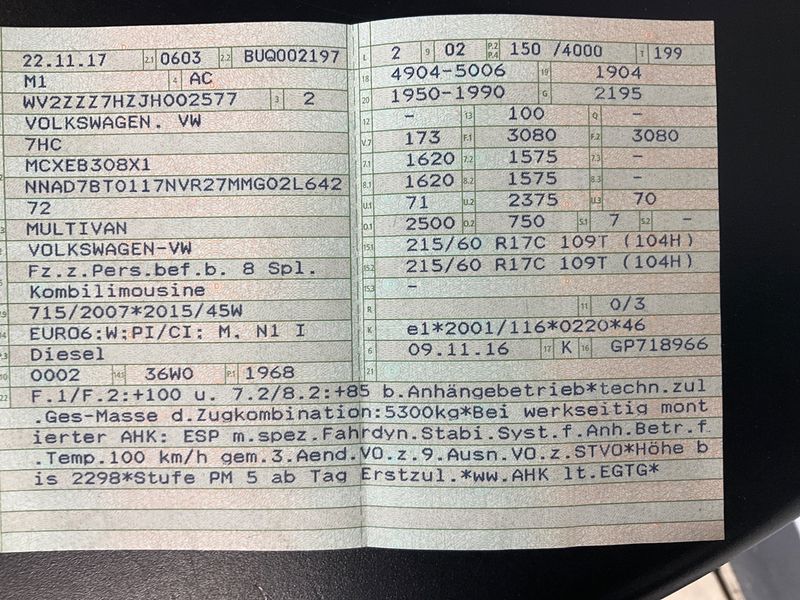 22.11.17 2.1 0603 2.2 BUQ002197
M1 4 AC
WV2ZZZ7HZJH002577 3 2
VOLKSWAGEN. VW
7HC
MCXEB308X1
NNAD7BT0117NVR27MMG02L642
72
MULTIVAN
VOLKSWAGEN-VW
Fz.z.Pers.bef.b. 8 Spl.
Kombilimousine
715/2007*2015/45W
EURO6;W;PI/CI; M, N1 I
Diesel
10 0002 14.1 36W0 P.1 1968
L 2 9 02 P.2 P.4 150 /4000 T 199
18 4904-5006 19 1904
20 1950-1990 G 2195
12 - 13 100 Q -
V.7 173 F.1 3080 F.2 3080
7.1 1620 7.2 1575 7.3 -
8.1 1620 8.2 1575 8.3 -
U.1 71 U.2 2375 U.3 70
O.1 2500 O.2 750 S.1 7 S.2 -
15.1 215/60 R17C 109T (104H)
15.2 215/60 R17C 109T (104H)
15.3 -
R 11 0/3
K e1*2001/116*0220*46
6 09.11.16 17 K 16 GP718966
21
22 F.1/F.2:+100 u. 7.2/8.2:+85 b.Anhängebetrieb*techn.zul
.Ges-Masse d.Zugkombination:5300kg*Bei werkseitig mont
ierter AHK: ESP m.spez.Fahrdyn.Stabi.Syst.f.Anh.Betr.f
.Temp.100 km/h gem.3.Aend.VO.z.9.Ausn.VO.z.STVO*Höhe b
is 2298*Stufe PM 5 ab Tag Erstzul.*ww.AHK lt.EGTG*